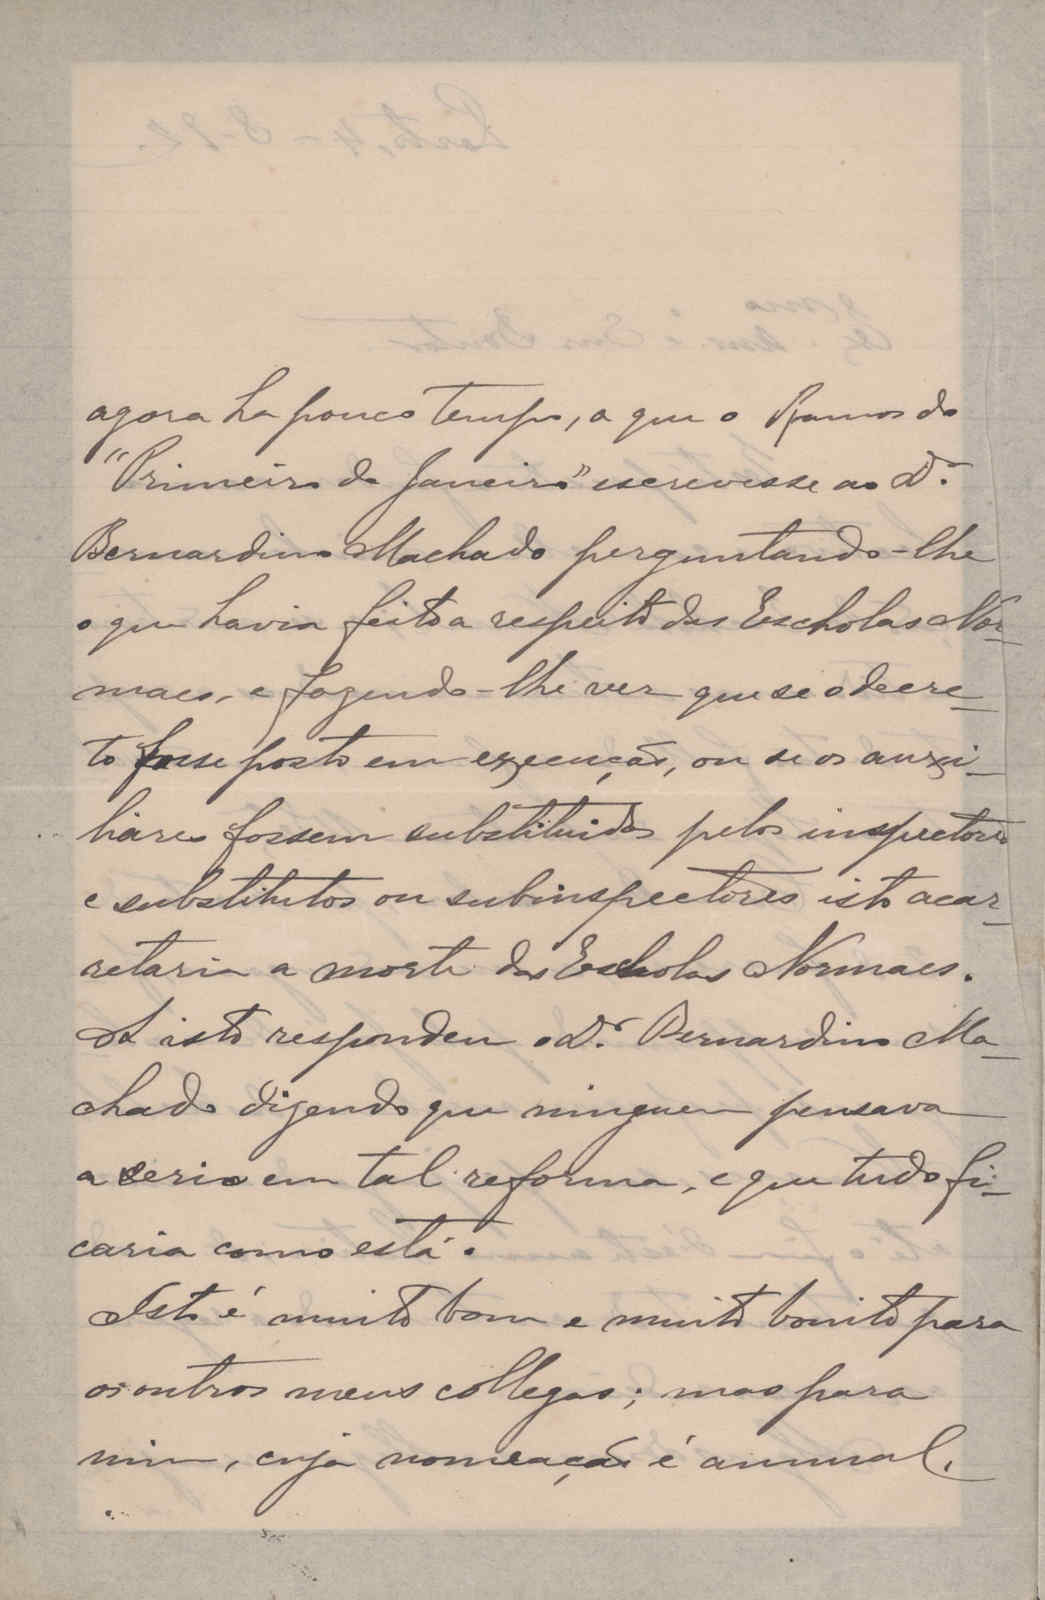 agora ha pouco tempo, a que o Ramos do
"Primeiro de Janeiro" escrevesse ao Dr.
Bernardino Machado perguntando-lhe
o que havia feito a respeito das Escholas Nor-
maes, e fazendo-lhe ver que se o decre-
to fosse posto em execução, ou se os auxi-
liares fossem substituidos pelos inspectores
e substitutos ou subinspectores isto acar-
retaria a morte das Escholas Normaes.
A isto respondeu o Dr. Bernardino Ma-
chado dizendo que ninguem pensava
a serio em tal reforma, e que tudo fi-
caria como está.
Isto é muito bom e muito bonito para
os outros meus collegas; mas para
mim, cuja nomeação é annual.